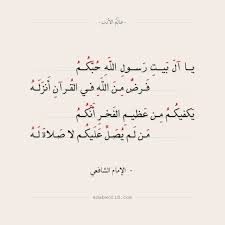 - عالم الأدب -
يَا آلَ بَيتِ رَسولِ اللَهِ حُبُّكُمُ
فَرضٌ مِنَ اللَهِ في القُرآنِ أَنزَلَهُ
يَكفيكُمُ مِن عَظيمِ الفَخرِ أَنَّكُمُ
مَن لَم يُصَلِّ عَلَيكُم لا صَلاةَ لَهُ
- الإمام الشافعي -